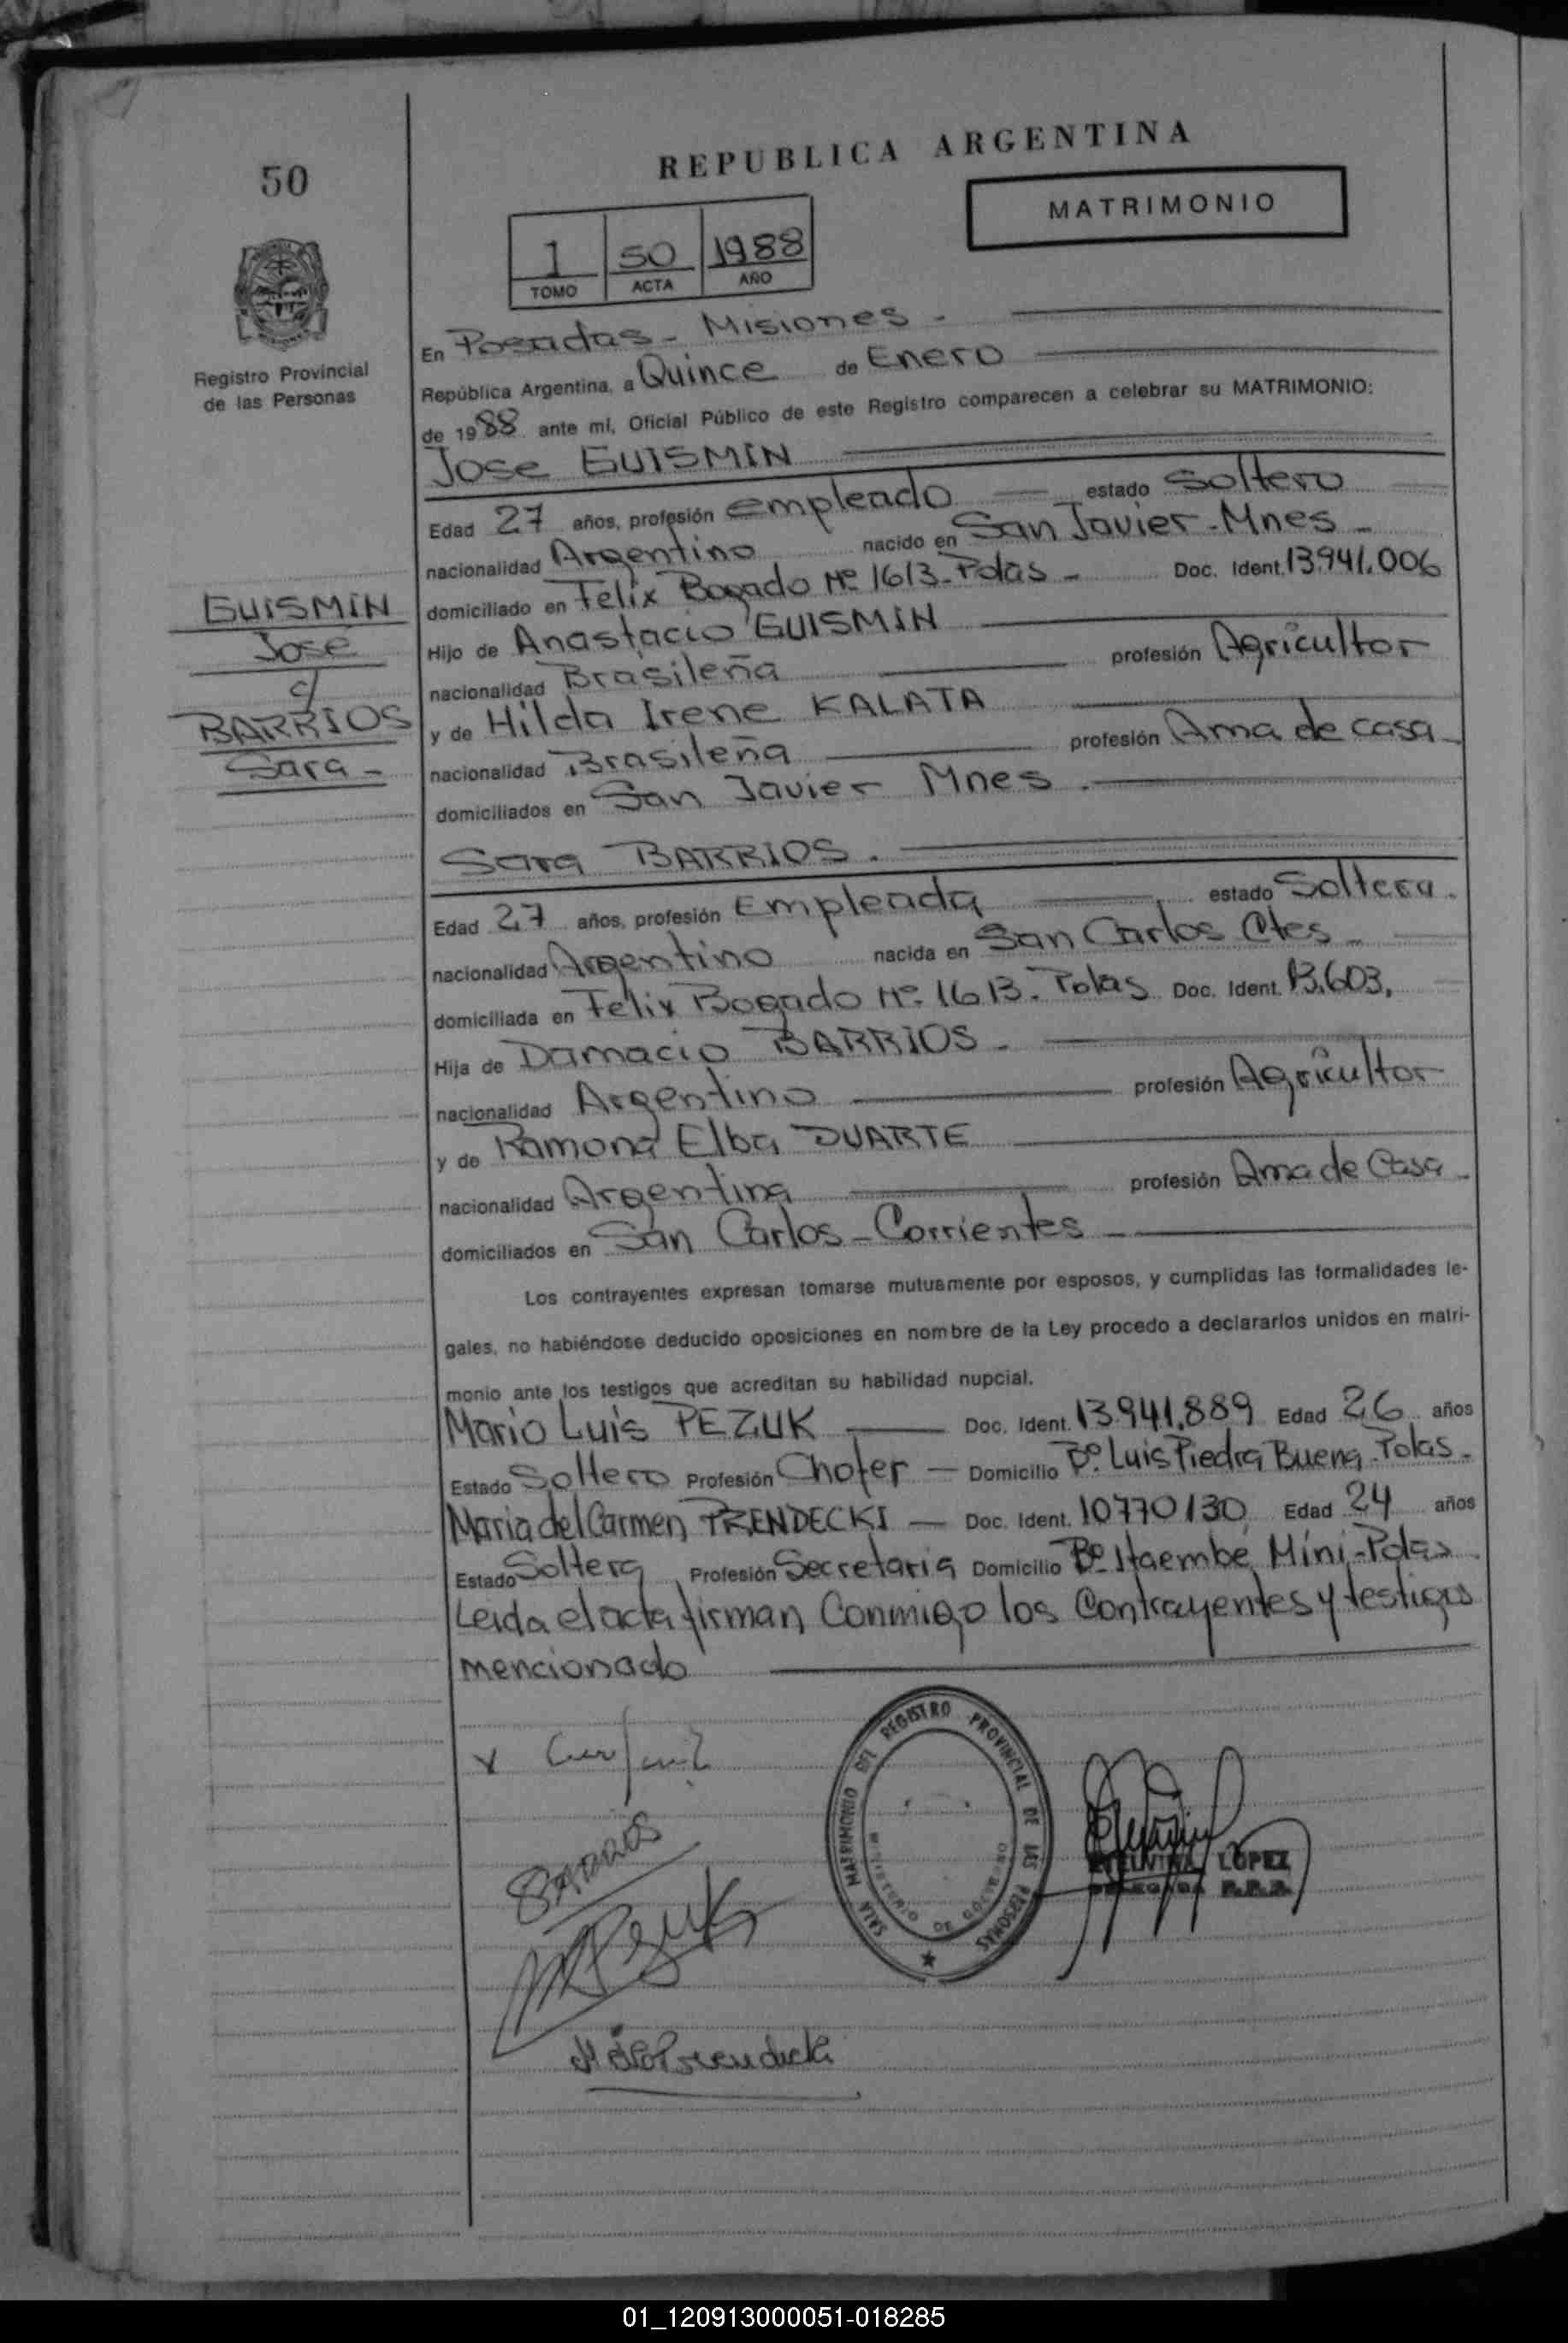 REPUBLICA ARGENTINA
50
MATRIMONIO
1 50 1988
TOMO ACTA AÑO
Registro Provincial
de las Personas
En Posadas - Misiones -
República Argentina, a Quince de Enero
de 1988 ante mí, Oficial Público de este Registro comparecen a celebrar su MATRIMONIO:
Jose GUISMIN
Edad 27 años, profesión empleado estado Soltero
nacionalidad Argentino nacido en San Javier - Mnes -
domiciliado en Felix Bogado Nº 1613 - Pdas - Doc. Ident. 13.941.006
Hijo de Anastacio GUISMIN
nacionalidad Brasileña profesión Agricultor
y de Hilda Irene KALATA
nacionalidad Brasileña profesión Ama de casa -
domiciliados en San Javier Mnes.
GUISMIN
José
c/
BARRIOS
Sara -
Sara BARRIOS.
Edad 27 años, profesión Empleada estado Soltera.
nacionalidad Argentino nacida en San Carlos Ctes -
domiciliada en Felix Bogado Nº 1613 - Pdas Doc. Ident. 13.603,
Hija de Damacio BARRIOS -
nacionalidad Argentino profesión Agricultor
y de Ramona Elba DUARTE
nacionalidad Argentina profesión Ama de Casa -
domiciliados en San Carlos - Corrientes
Los contrayentes expresan tomarse mutuamente por esposos, y cumplidas las formalidades le-
gales, no habiéndose deducido oposiciones en nombre de la Ley procedo a declararlos unidos en matri-
monio ante los testigos que acreditan su habilidad nupcial.
Mario Luis PEZUK Doc. Ident. 13.941.889 Edad 26 años
Estado Soltero Profesión Chofer - Domicilio Bº Luis Piedra Buena - Pdas -
Maria del Carmen PRENDECKI - Doc. Ident. 10770130 Edad 24 años
Estado Soltera Profesión Secretaria Domicilio Bº Itaembé Míni - Pdas
Leida el acta firman Conmigo los Contrayentes y testigos
mencionado
SALA MATRIMONIO DEL REGISTRO PROVINCIAL DE LAS PERSONAS
MINISTERIO DE GOBIERNO
LOPEZ
DELEGADA R.P.P.
01_120913000051-018285